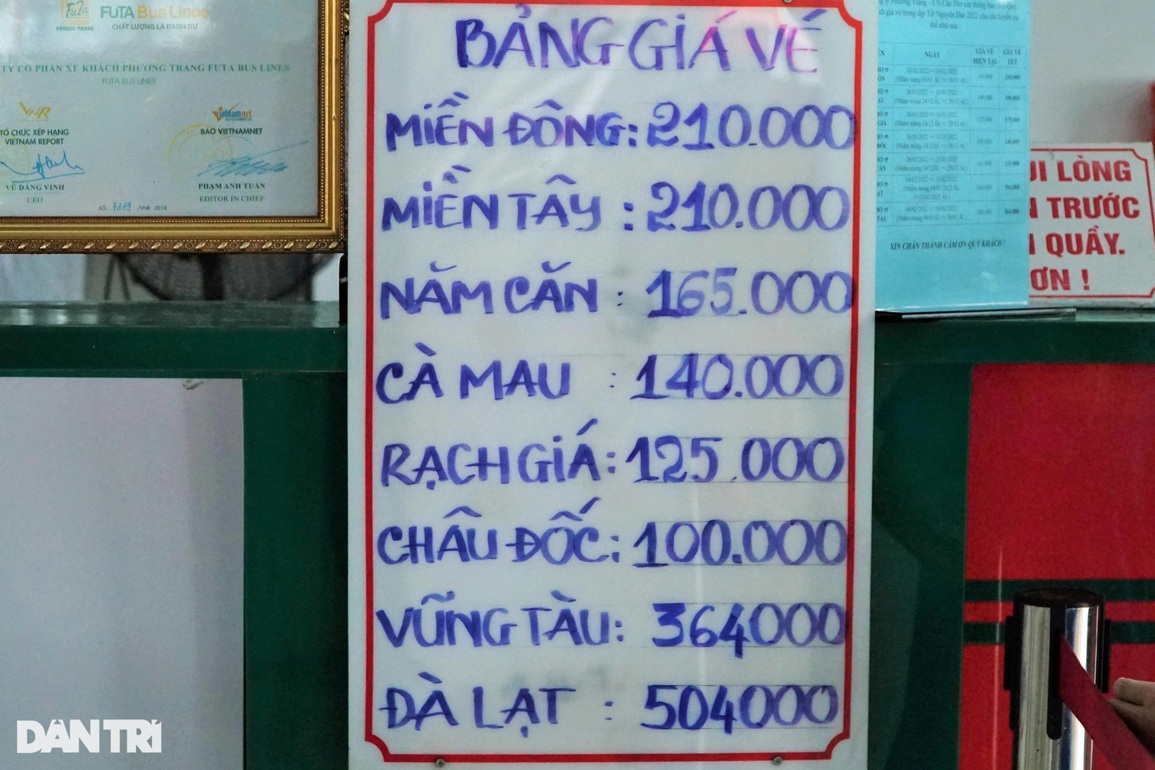 FUTA Bus Lines
CHẤT LƯỢNG LÀ DANH DỰ
TY CỔ PHẦN XE KHÁCH PHƯƠNG TRANG FUTA BUS LINES
FUTA BUS LINES
VNR
TỔ CHỨC XẾP HẠNG
VIETNAM REPORT
VŨ ĐĂNG VINH
CEO
BÁO VIETNAMNET
PHẠM ANH TUẤN
EDITOR IN CHIEF
BẢNG GIÁ VÉ
MIỀN ĐÔNG: 210.000
MIỀN TÂY : 210.000
NĂM CĂN : 165.000
CÀ MAU : 140.000
RẠCH GIÁ: 125.000
CHÂU ĐỐC: 100.000
VŨNG TÀU: 364000
ĐÀ LẠT : 504000
NGÀY
GIÁ VÉ
HIỆN TẠI
GIÁ VÉ
TẾT
XIN CHÂN THÀNH CẢM ƠN QUÝ KHÁCH !
UI LÒNG
TRƯỚC
QUẦY.
ƠN !
DÂN TRÍ